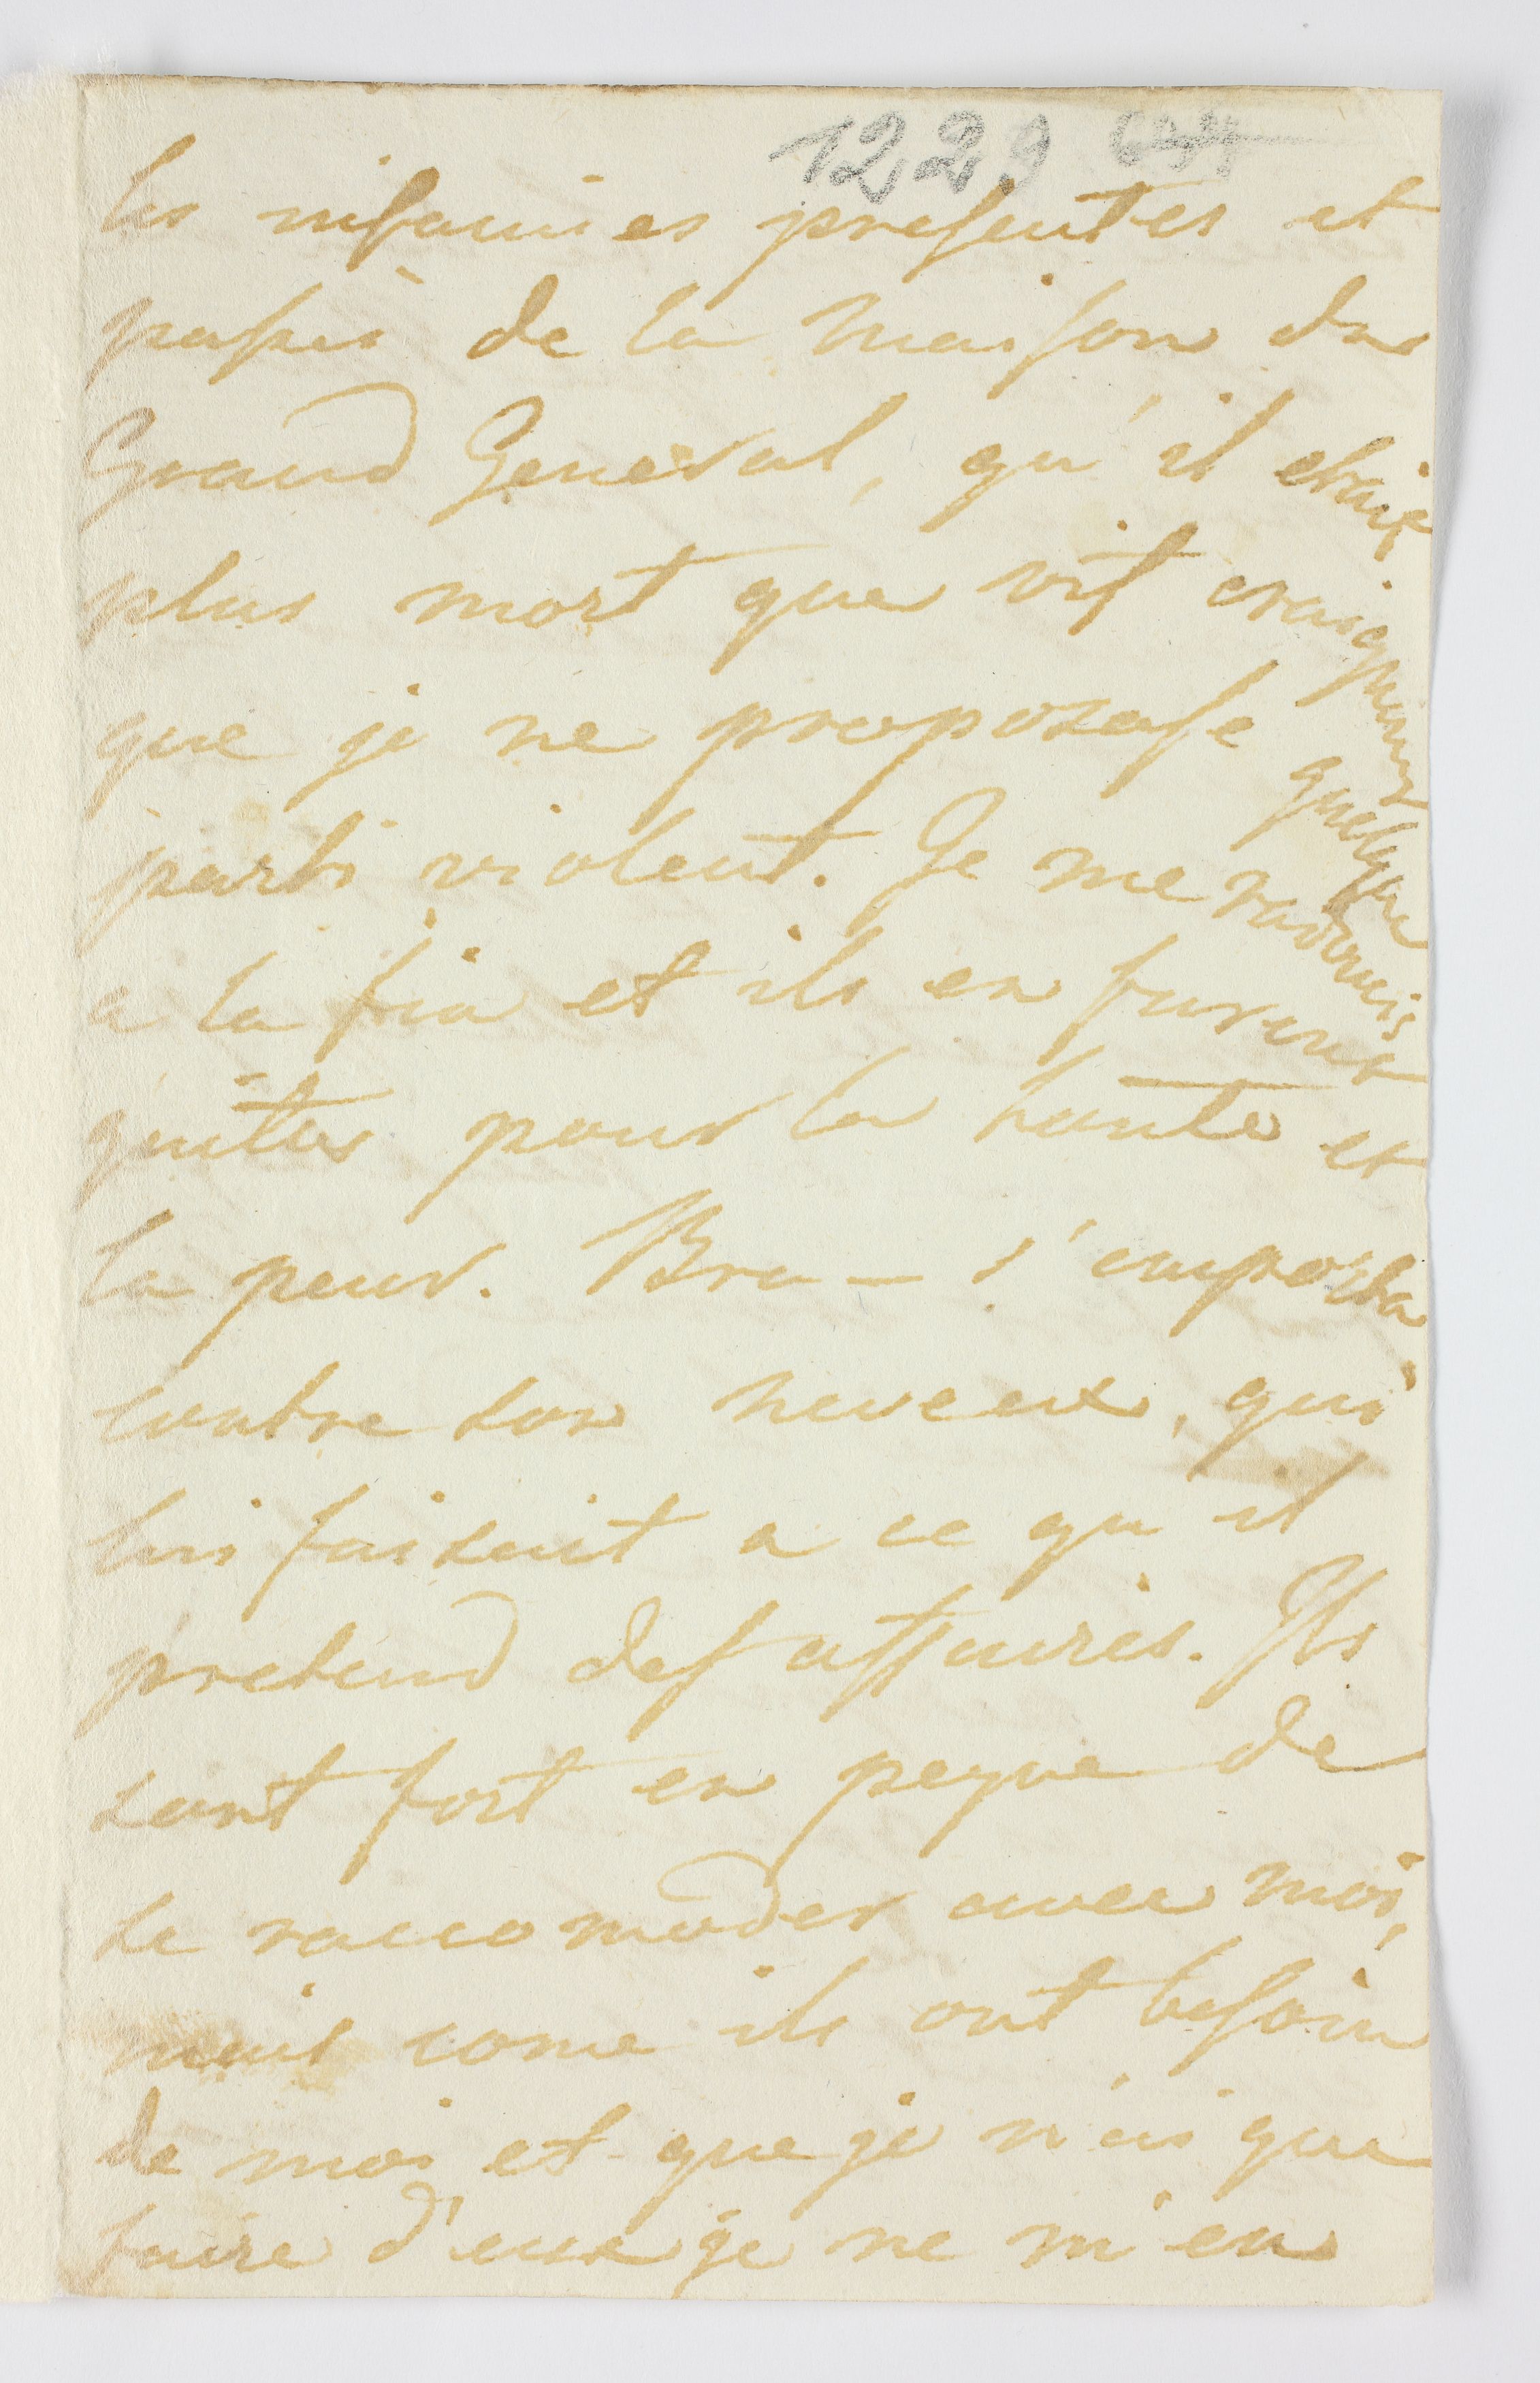 1229
les infamies presentes et
passés de la maison du
Grand General, qu'il etait
plus mort que vif craignant
que je ne proposasse quelque
parti violent. Je me radoucis
a la fin et ils en furent
quittes pour la honte et
la peur. Bra — s'emporta
contre son neveux, qui
lui faisait a ce qu'il
pretend des affaires. Ils
sont fort en peyne de
se raccomoder avec moi,
mais come ils ont besoin
de moi et que je n'ai que
faire d'eux je ne m'en